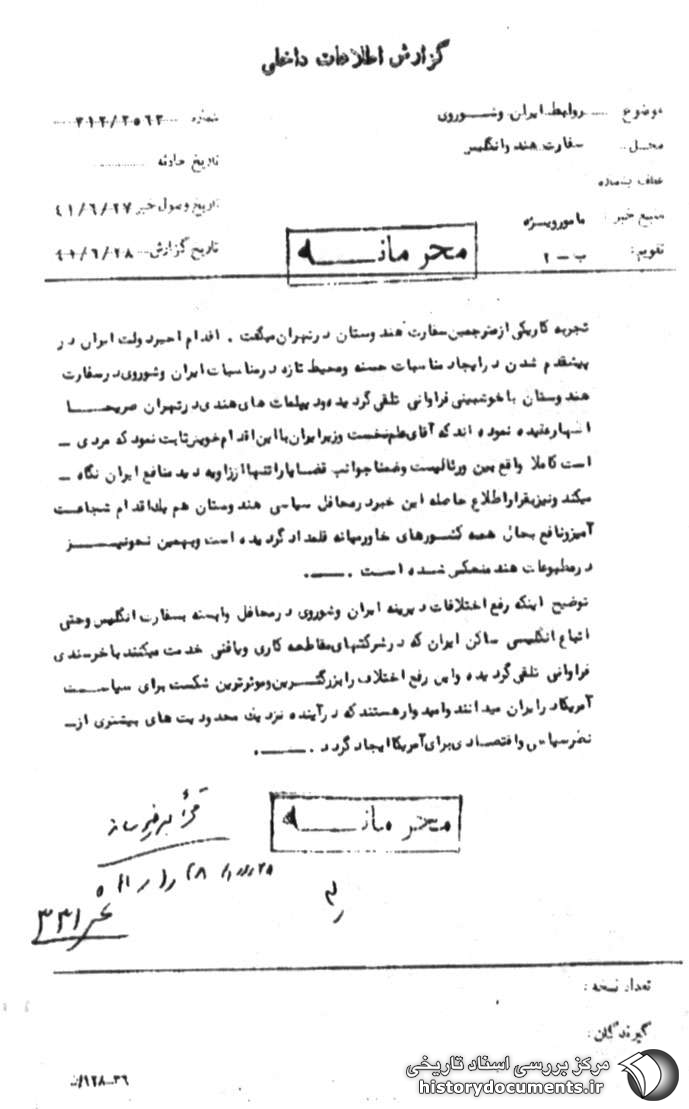 گزارش اطلاعات داخلی
موضوع روابط ایران وشوروی
شماره ۳۱۲/۲۵۶۳
محل سفارت هند وانگلیس
تاریخ حادثه
عطف بشماره
تاریخ وصول خبر ۴۱/۶/۲۷
منبع خبر: مامورویژه
تاریخ گزارش ۴۱/۶/۲۸
تقویم: ب - ۲
محرمانه
تجربه کاریکی ازمترجمین سفارت هندوستان درتهران میگفت . اقدام اخیردولت ایران در
پیشقدم شدن درایجاد مناسبات حسنه ومحیط تازه درمناسبات ایران وشوروی درسفارت
هندوستان باخوشبینی فراوانی تلقی گردیده ودیپلمات های هندی درتهران صریحا
اظهارعقیده نموده اند که آقای علم نخست وزیرایران بااین اقدام خویش ثابت نمود که مردی -
است کاملا واقع بین ورئالیست وضمنا جوانب قضایاراتنهاازاویه دید منافع ایران نگاه -
میکند ونیزبقراراطلاع حاصله این خبردرمحافل سیاسی هندوستان هم یک اقدام شجاعت
آمیزونافع بحال همه کشورهای خاورمیانه قلمداد گردیده است وبهمین نحونیز
درمطبوعات هند منعکس شده است .
توضیح اینکه رفع اختلافات دیرینه ایران وشوروی درمحافل وابسته بسفارت انگلیس وحتی
اتباع انگلیسی ساکن ایران که درشرکتهای مقاطعه کاری وبافنی خدمت میکنند باخرسندی
فراوانی تلقی گردیده واین رفع اختلاف رابزرگترین وموثرترین شکست برای سیاست
آمریکادرایران میدانند وامیدوارهستند که درآینده نزدیک محدودیت های بیشتری از-
نظرسیاسی واقتصادی برای آمریکاایجاد گردد .
محرمانه
۳۳۱
تعداد نسخه :
گیرندگان :
۱۲۸-۳۶
مرکز بررسی اسناد تاریخی
historydocuments.ir